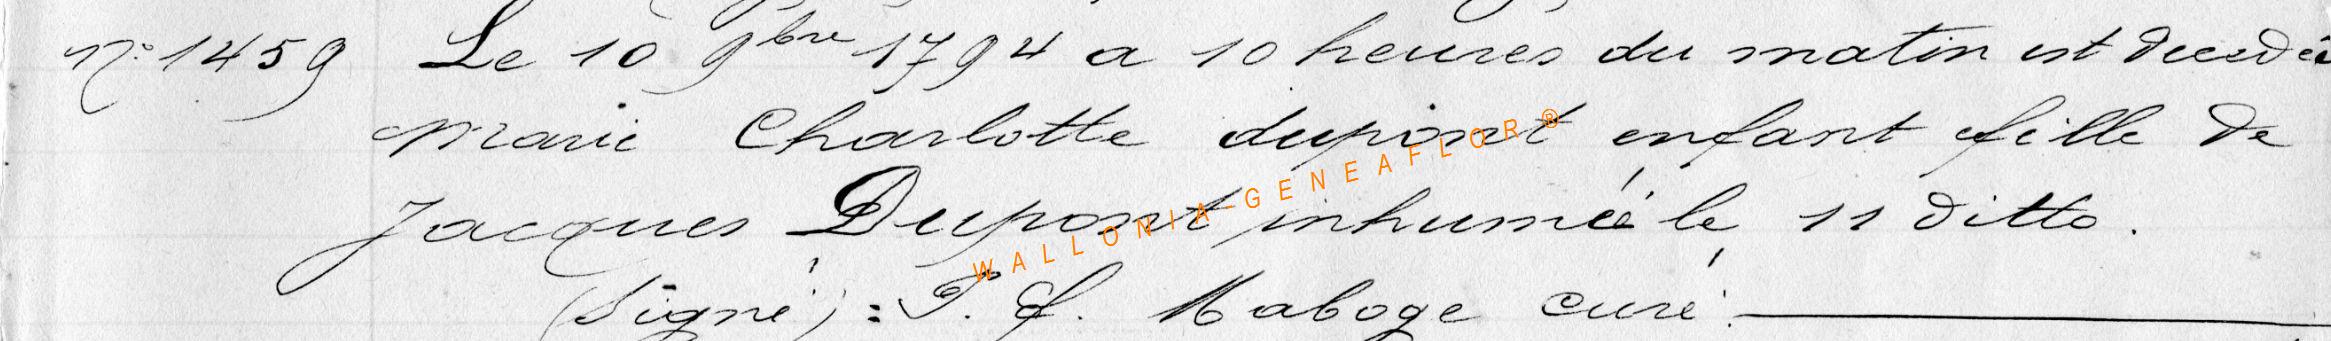 N° 1459 Le 10 9bre 1794 a 10 heures du matin est decedée
Marie Charlotte dupont enfant fille de
Jacques Dupont inhumée le 11 ditto.
(Signé) : P. J. Maboge curé.
WALLONIA-GENEAFLOR®